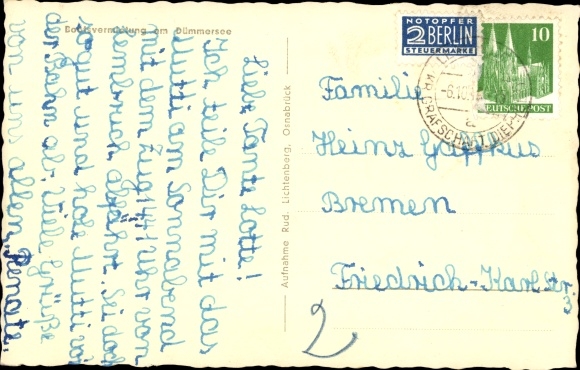 Bootsvermietung am Dümmersee
Liebe Tante Lotte!
Ich teile Dir mit das
Mutti am Sonnabend
mit dem Zug 1441 Uhr von
Lembruch abfährt. Sei doch
so gut und hole Mutti von
der Bahn ab. Viele Grüße
von uns allen, Renate.
Aufnahme Rud. Lichtenberg, Osnabrück
NOTOPFER
2 BERLIN
STEUERMARKE
10
DEUTSCHE POST
GRAFSCHAFT DIEPH
Familie
Heinz Gaffkus
Bremen
Friedrich-Karl Str
3
2